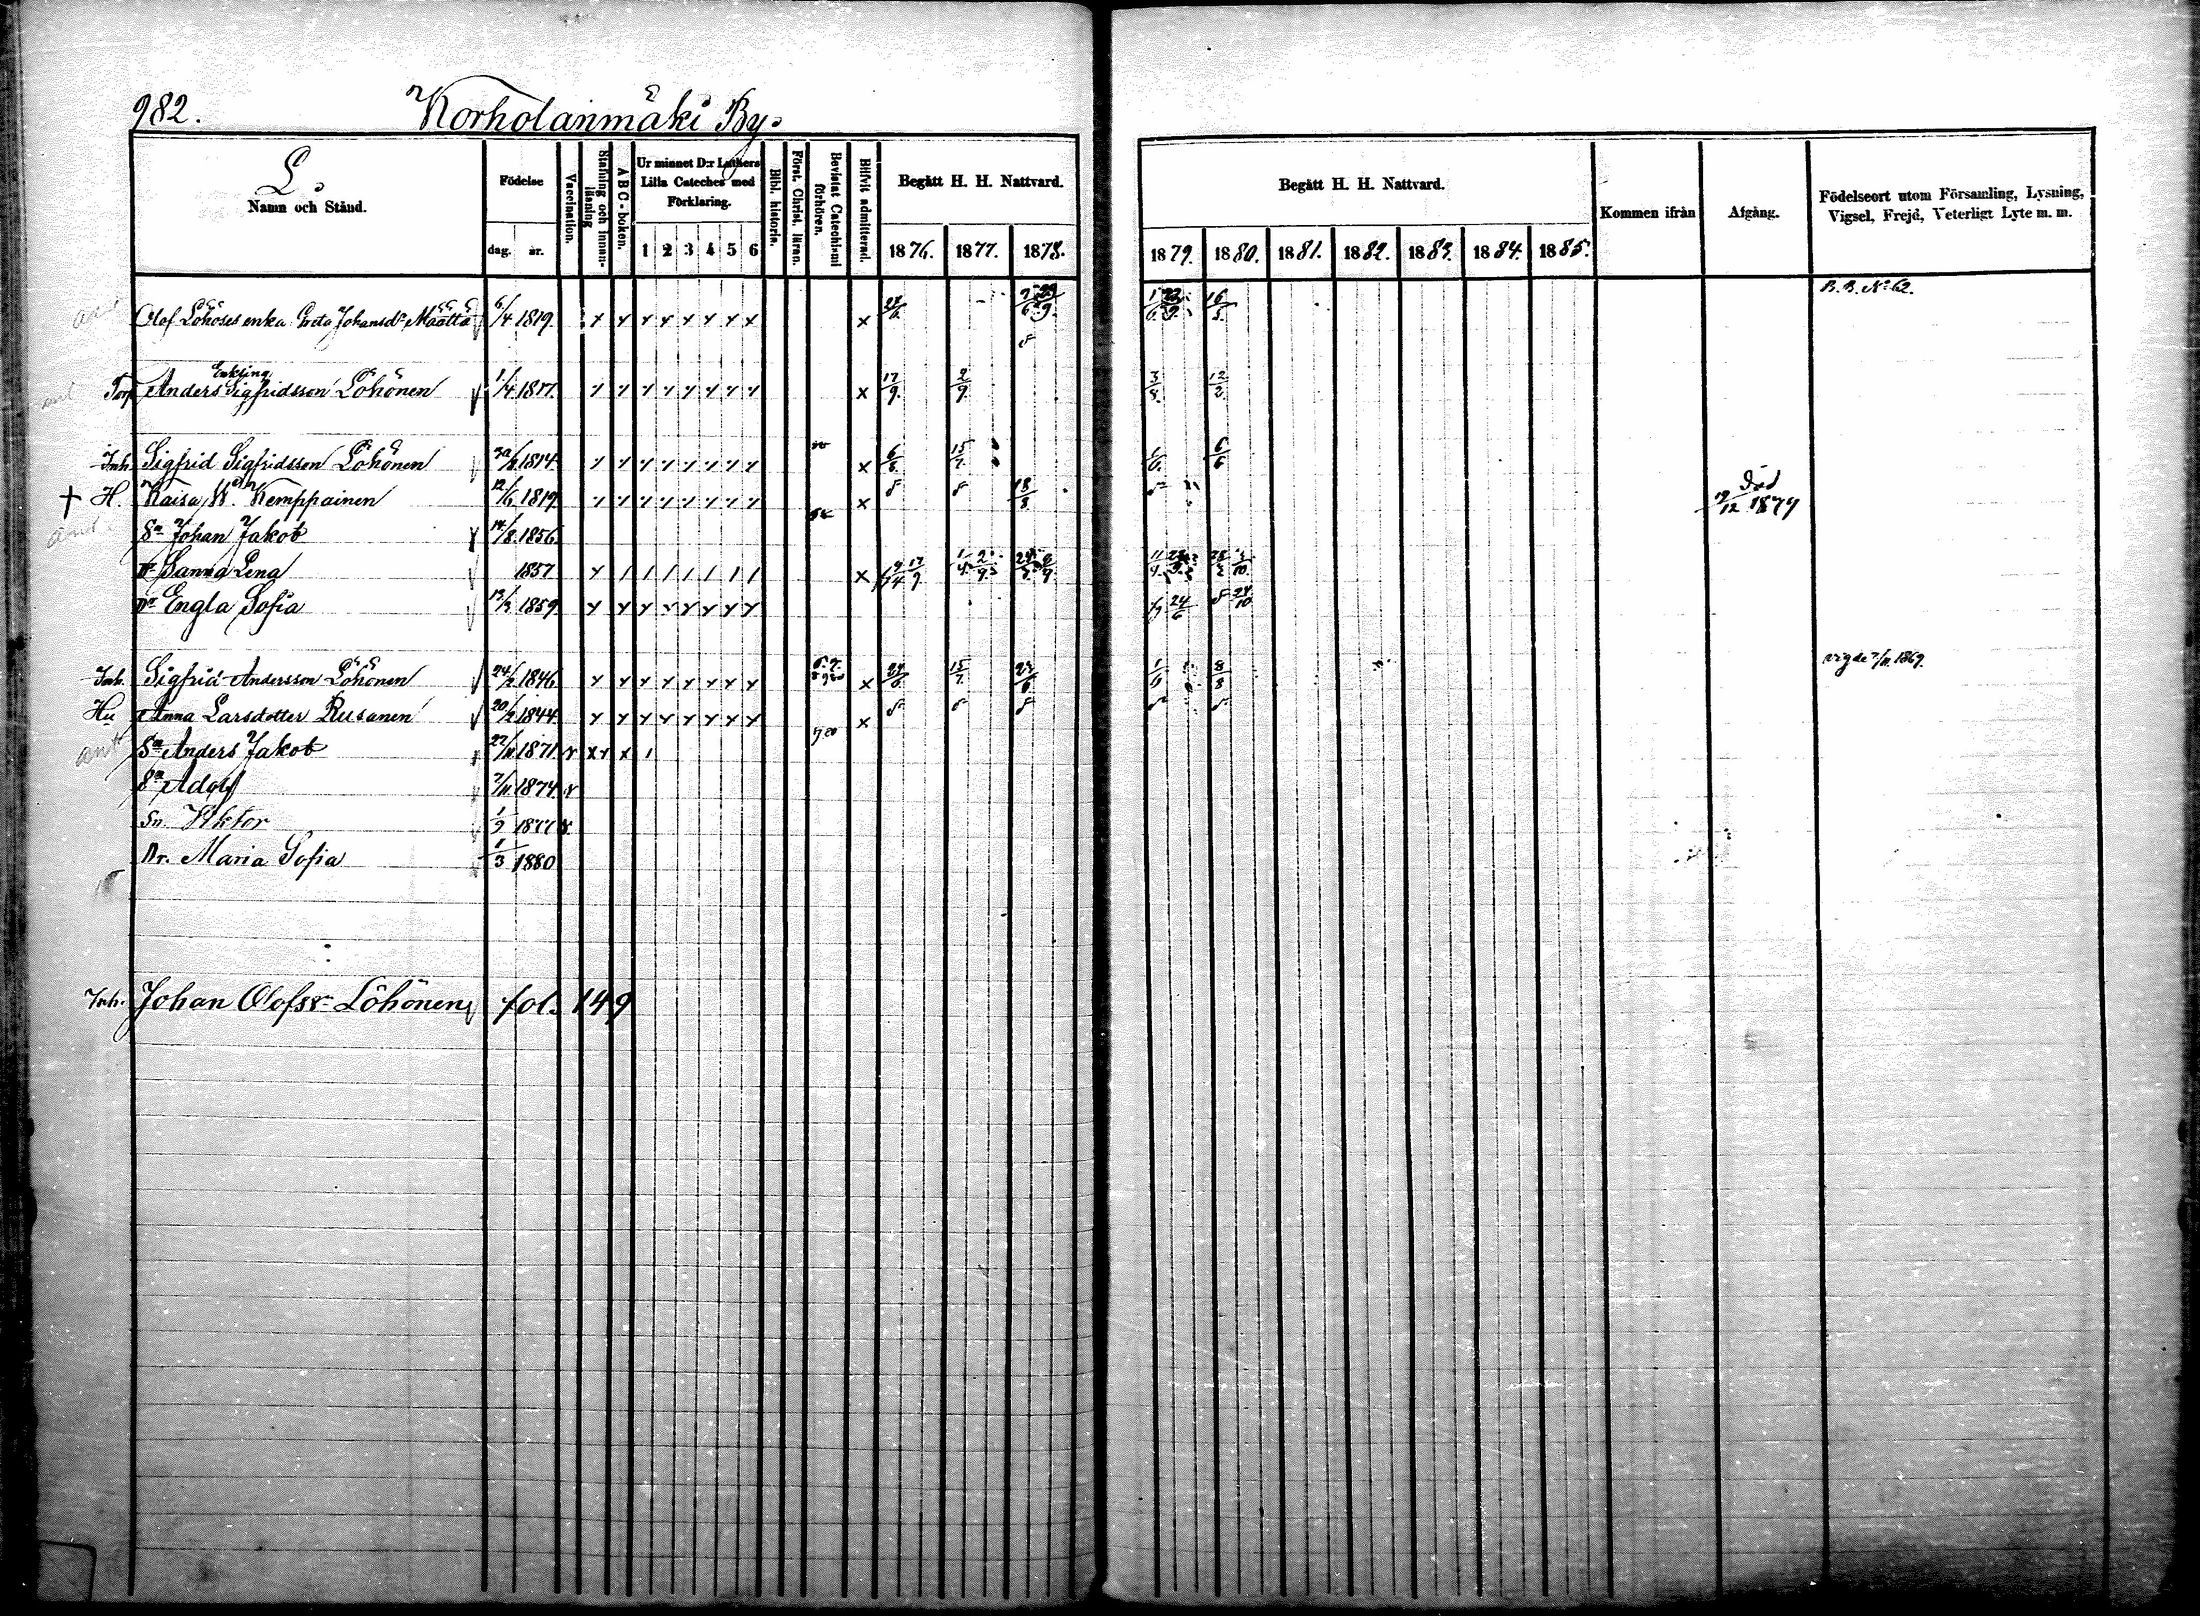 982. Korholanmäki By.
L.
Namn och Stånd.
Födelse
dag. år.
Vaccination.
Stafning och innanläsning
A B C-boken.
Ur minnet D:r Luthers Lilla Cateches med Förklaring.
1 2 3 4 5 6
Bibl. historia.
Först. Christ. läran.
Bevistat Catechismi förhören.
Blifvit admitterad.
Begått H. H. Nattvard.
1876. 1877. 1878.
Begått H. H. Nattvard.
1879. 1880. 1881. 1882. 1883. 1884. 1885.
Kommen ifrån
Afgång.
Födelseort utom Församling, Lysning, Vigsel, Frejd, Veterligt Lyte m. m.
B. B. No 62.
Olof Löhöses enka Greta Johansdr Määttä 6/4 1819.
Enkling
Torp Anders Sigfridsson Löhönen 1/4 1817. 17/9. 2/9. 3/8. 12/2
Inh. Sigfrid Sigfridsson Löhönen 1814. 6/8. 15/7. 6/6
† H. Kaisa Kemppainen 12/6 1819 18/8 död 19/12 1879
Sn Johan Jakob 14/8 1856
Dr Sanna Lena 1857
Dr Engla Sofia 13/3 1859 24/6 24/10
Inh. Sigfrid Andersson Löhönen 24/2 1846 15/7. 8/8 vigde 7/11 1869.
Hu Anna Larsdotter Rusanen 20/2 1844
Sn Anders Jakob 27/11 1871
Sn Adolf 7/11 1874
Sn Viktor 1/9 1877
Dr. Maria Sofia 1/3 1880
Inh. Johan Olofsr Löhönen fol. 149